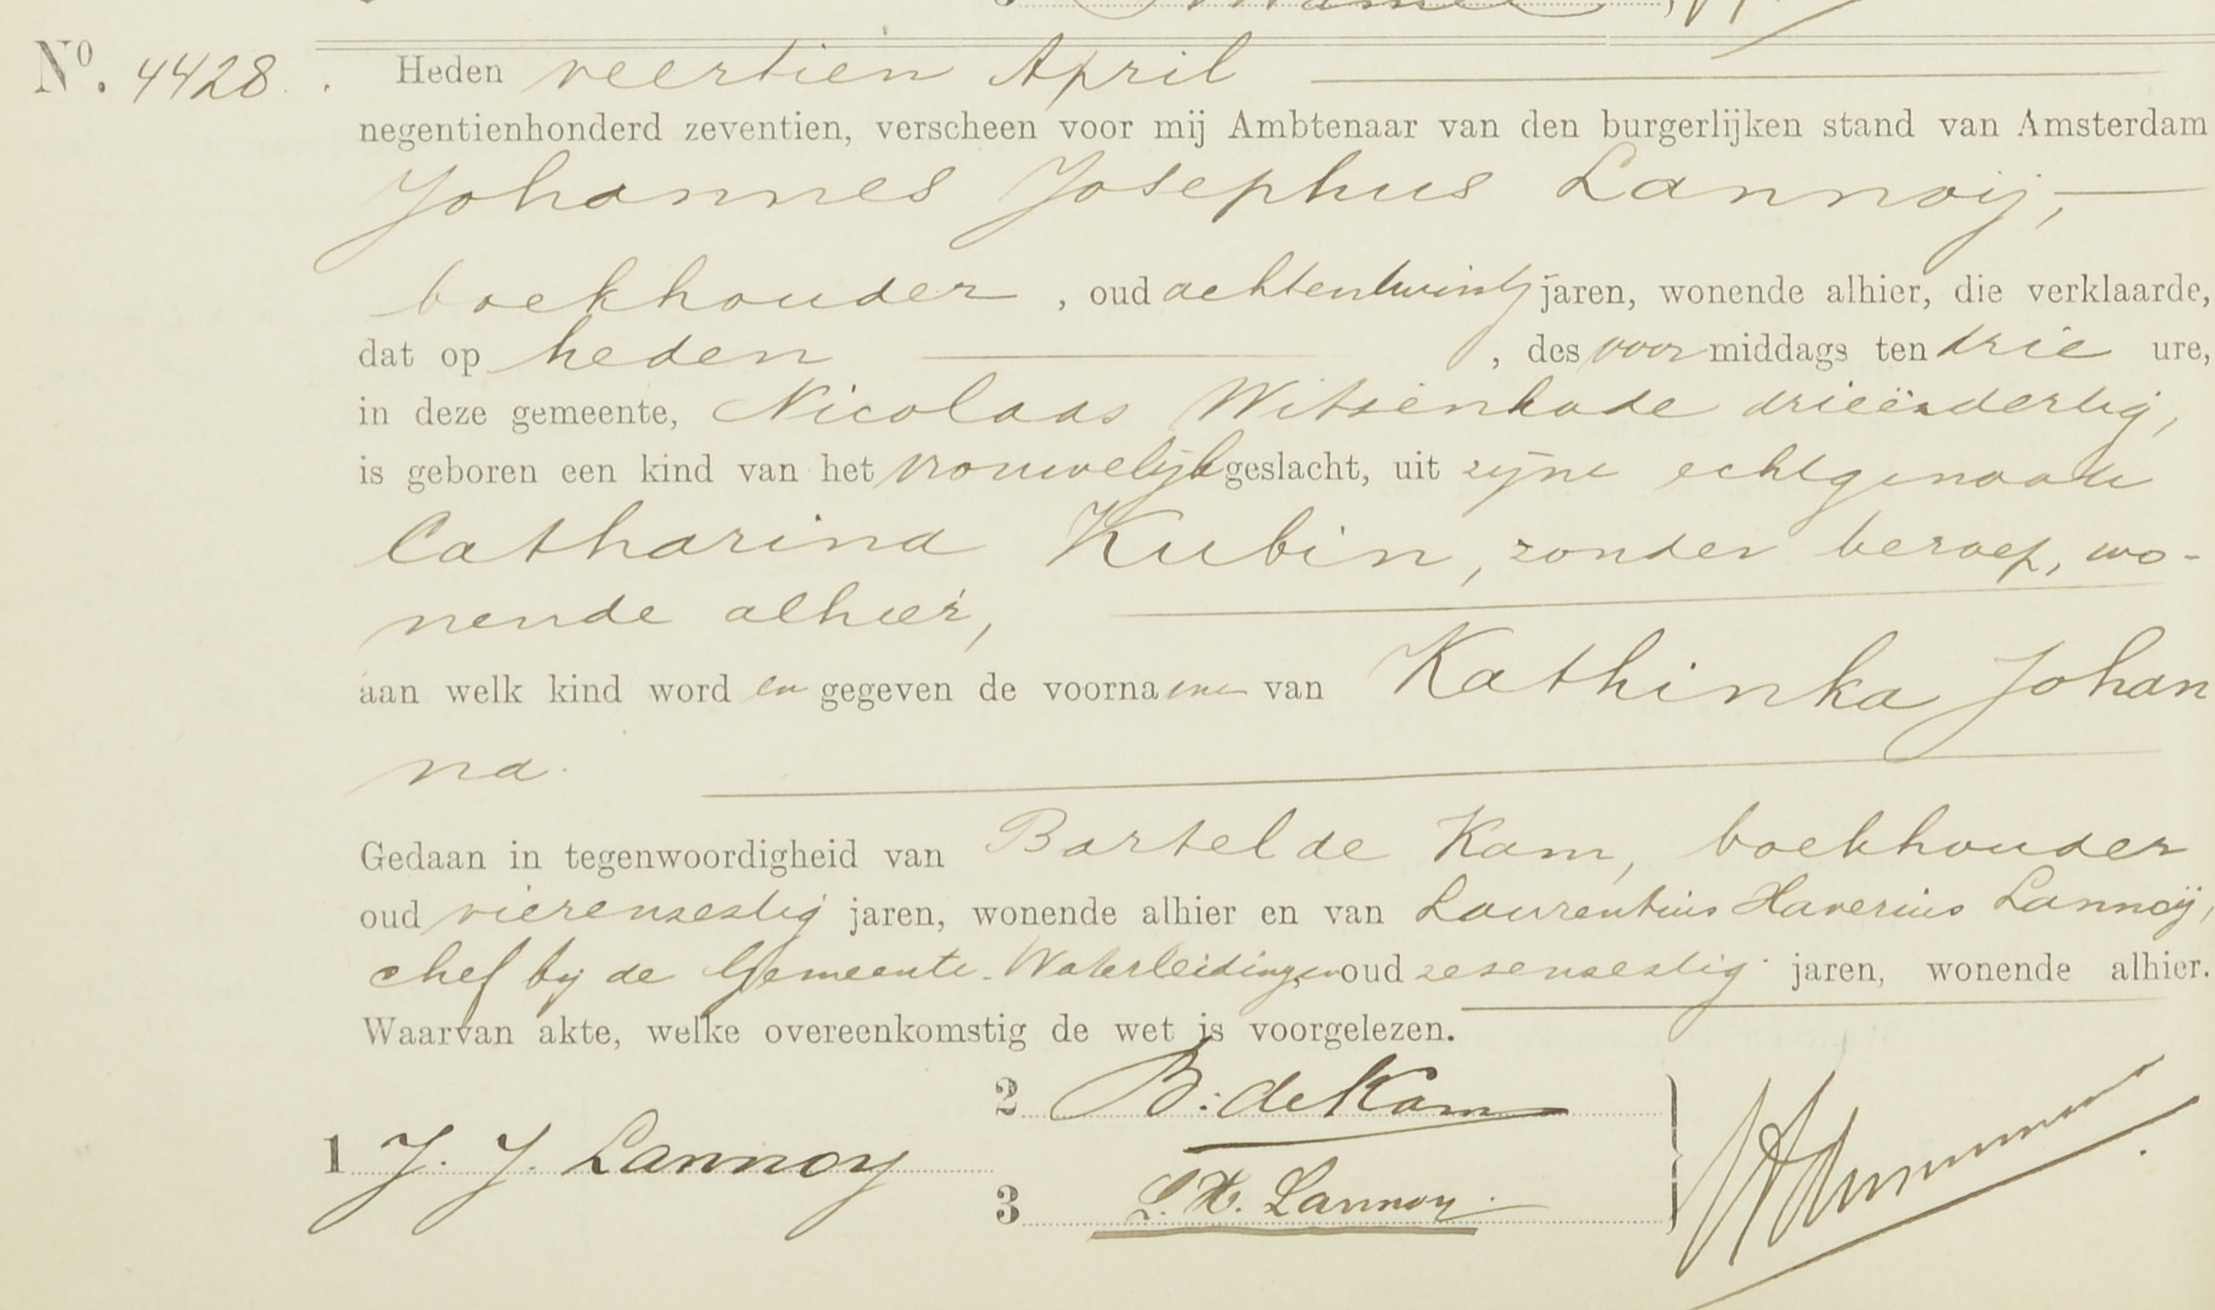 No. 4428. Heden veertien April
negentienhonderd zeventien, verscheen voor mij Ambtenaar van den burgerlijken stand van Amsterdam
Johannes Josephus Lannoij,
boekhouder, oud achtentwintig jaren, wonende alhier, die verklaarde,
dat op heden, des voormiddags ten drie ure,
in deze gemeente, Nicolaas Witsenkade drieëndertig,
is geboren een kind van het vrouwelijk geslacht, uit zijne echtgenoote
Catharina Kubin, zonder beroep, wo-
nende alhier,
aan welk kind worden gegeven de voornamen van Kathinka Johan
na.
Gedaan in tegenwoordigheid van Bartel de Kam, boekhouder
oud vierenzestig jaren, wonende alhier en van Laurentius Xaverius Lannoij,
chef bij de Gemeente-Waterleidingen oud zesenzestig jaren, wonende alhier.
Waarvan akte, welke overeenkomstig de wet is voorgelezen.
2 B. de Kam
1 J. J. Lannoy
3 L. X. Lannoy.